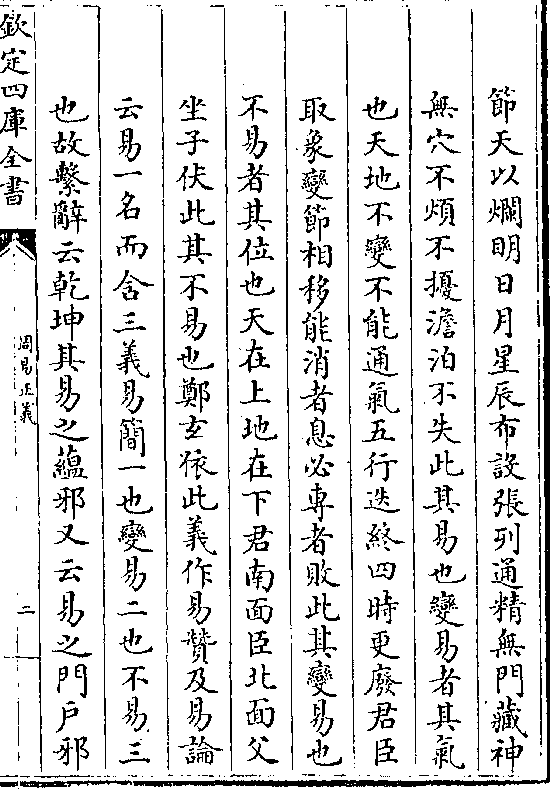 節天以爛明日月星辰布設張列通精無門藏神
無穴不煩不擾澹泊不失此其易也變易者其氣
也天地不變不能通氣五行迭終四時更廢君臣
取象變節相移能消者息必專者敗此其變易也
不易者其位也天在上地在下君南面臣北面父
坐子伏此其不易也鄭玄依此義作易贊及易論
云易一名而含三義易簡一也變易二也不易三
也故繫辭云乾坤其易之蘊邪又云易之門戶邪
欽定四庫全書
周易正義
二